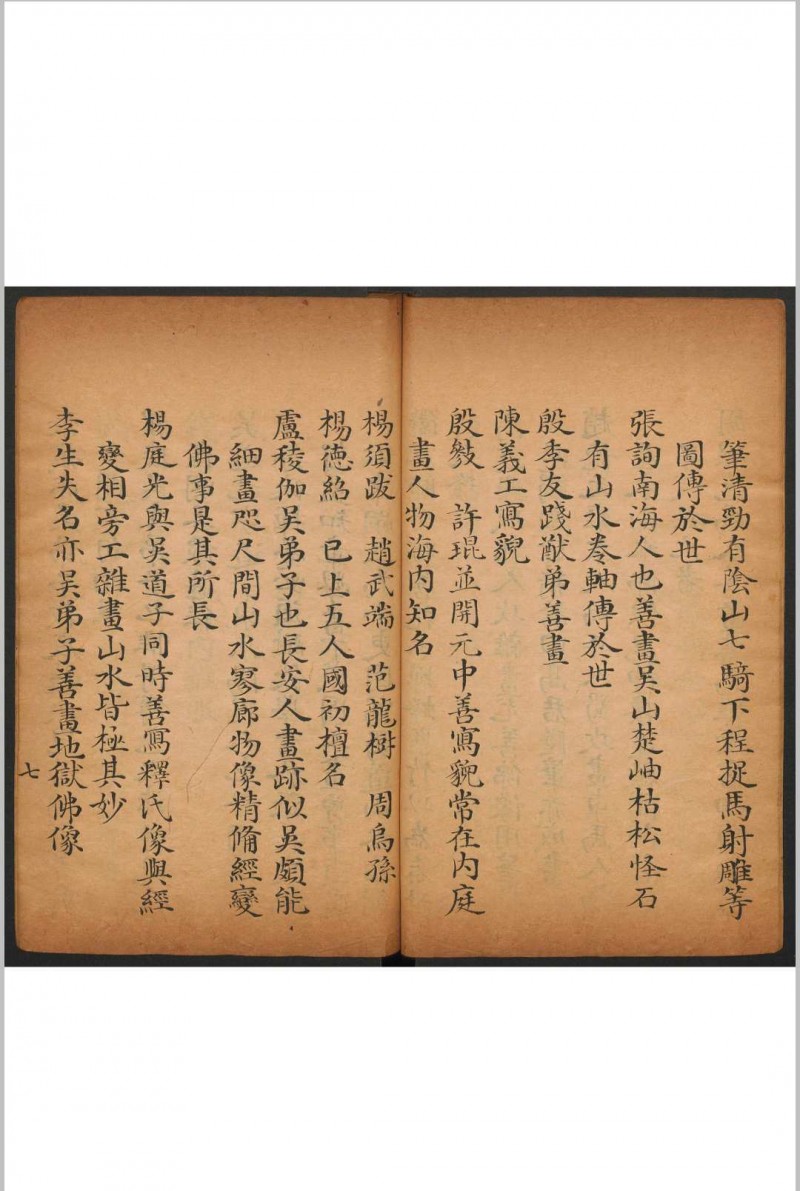 筆清勁有陰山七騎下程捉馬射雕等
圖傳於世
張詢南海人也善畫吴山楚岫枯松怪石
有山水卷軸傳於世
殷季友踐猷弟善畫
陳義工寫貌
殷敠 許琨並開元中善寫貌常在内庭
畫人物海内知名
楊須跋 趙武端 范龍樹 周烏孫
楊德紹 已上五人國初檀名
盧稜伽吴弟子也長安人畫跡似吴頗能
細畫咫尺間山水寥廓物像精俻經變
佛事是其所長
楊庭光與吴道子同時善寫釋氏像與經
變相旁工雜畫山水皆極其妙
李生失名亦吴弟子善畫地獄佛像
七